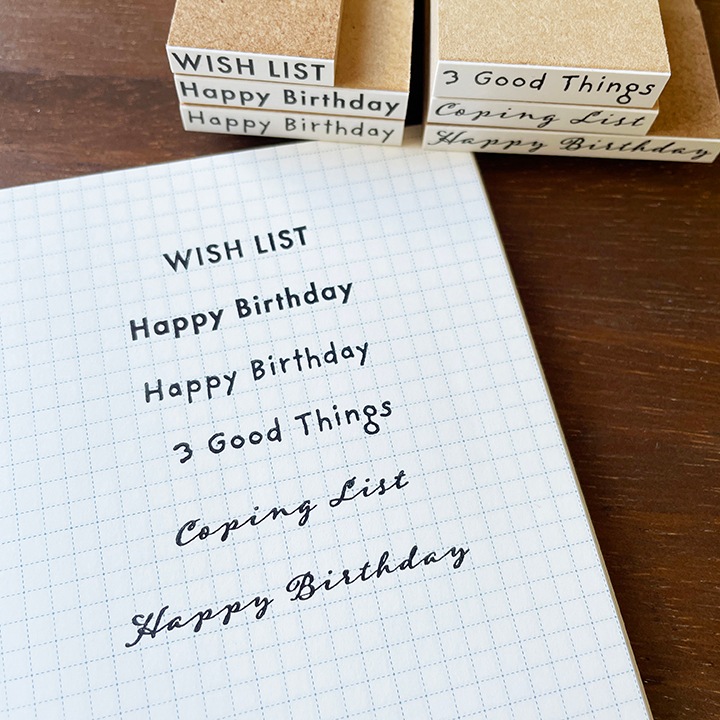 WISH LIST
Happy Birthday
Happy Birthday
3 Good Things
Coping List
Happy Birthday
WISH LIST
Happy Birthday
Happy Birthday
3 Good Things
Coping List
Happy Birthday